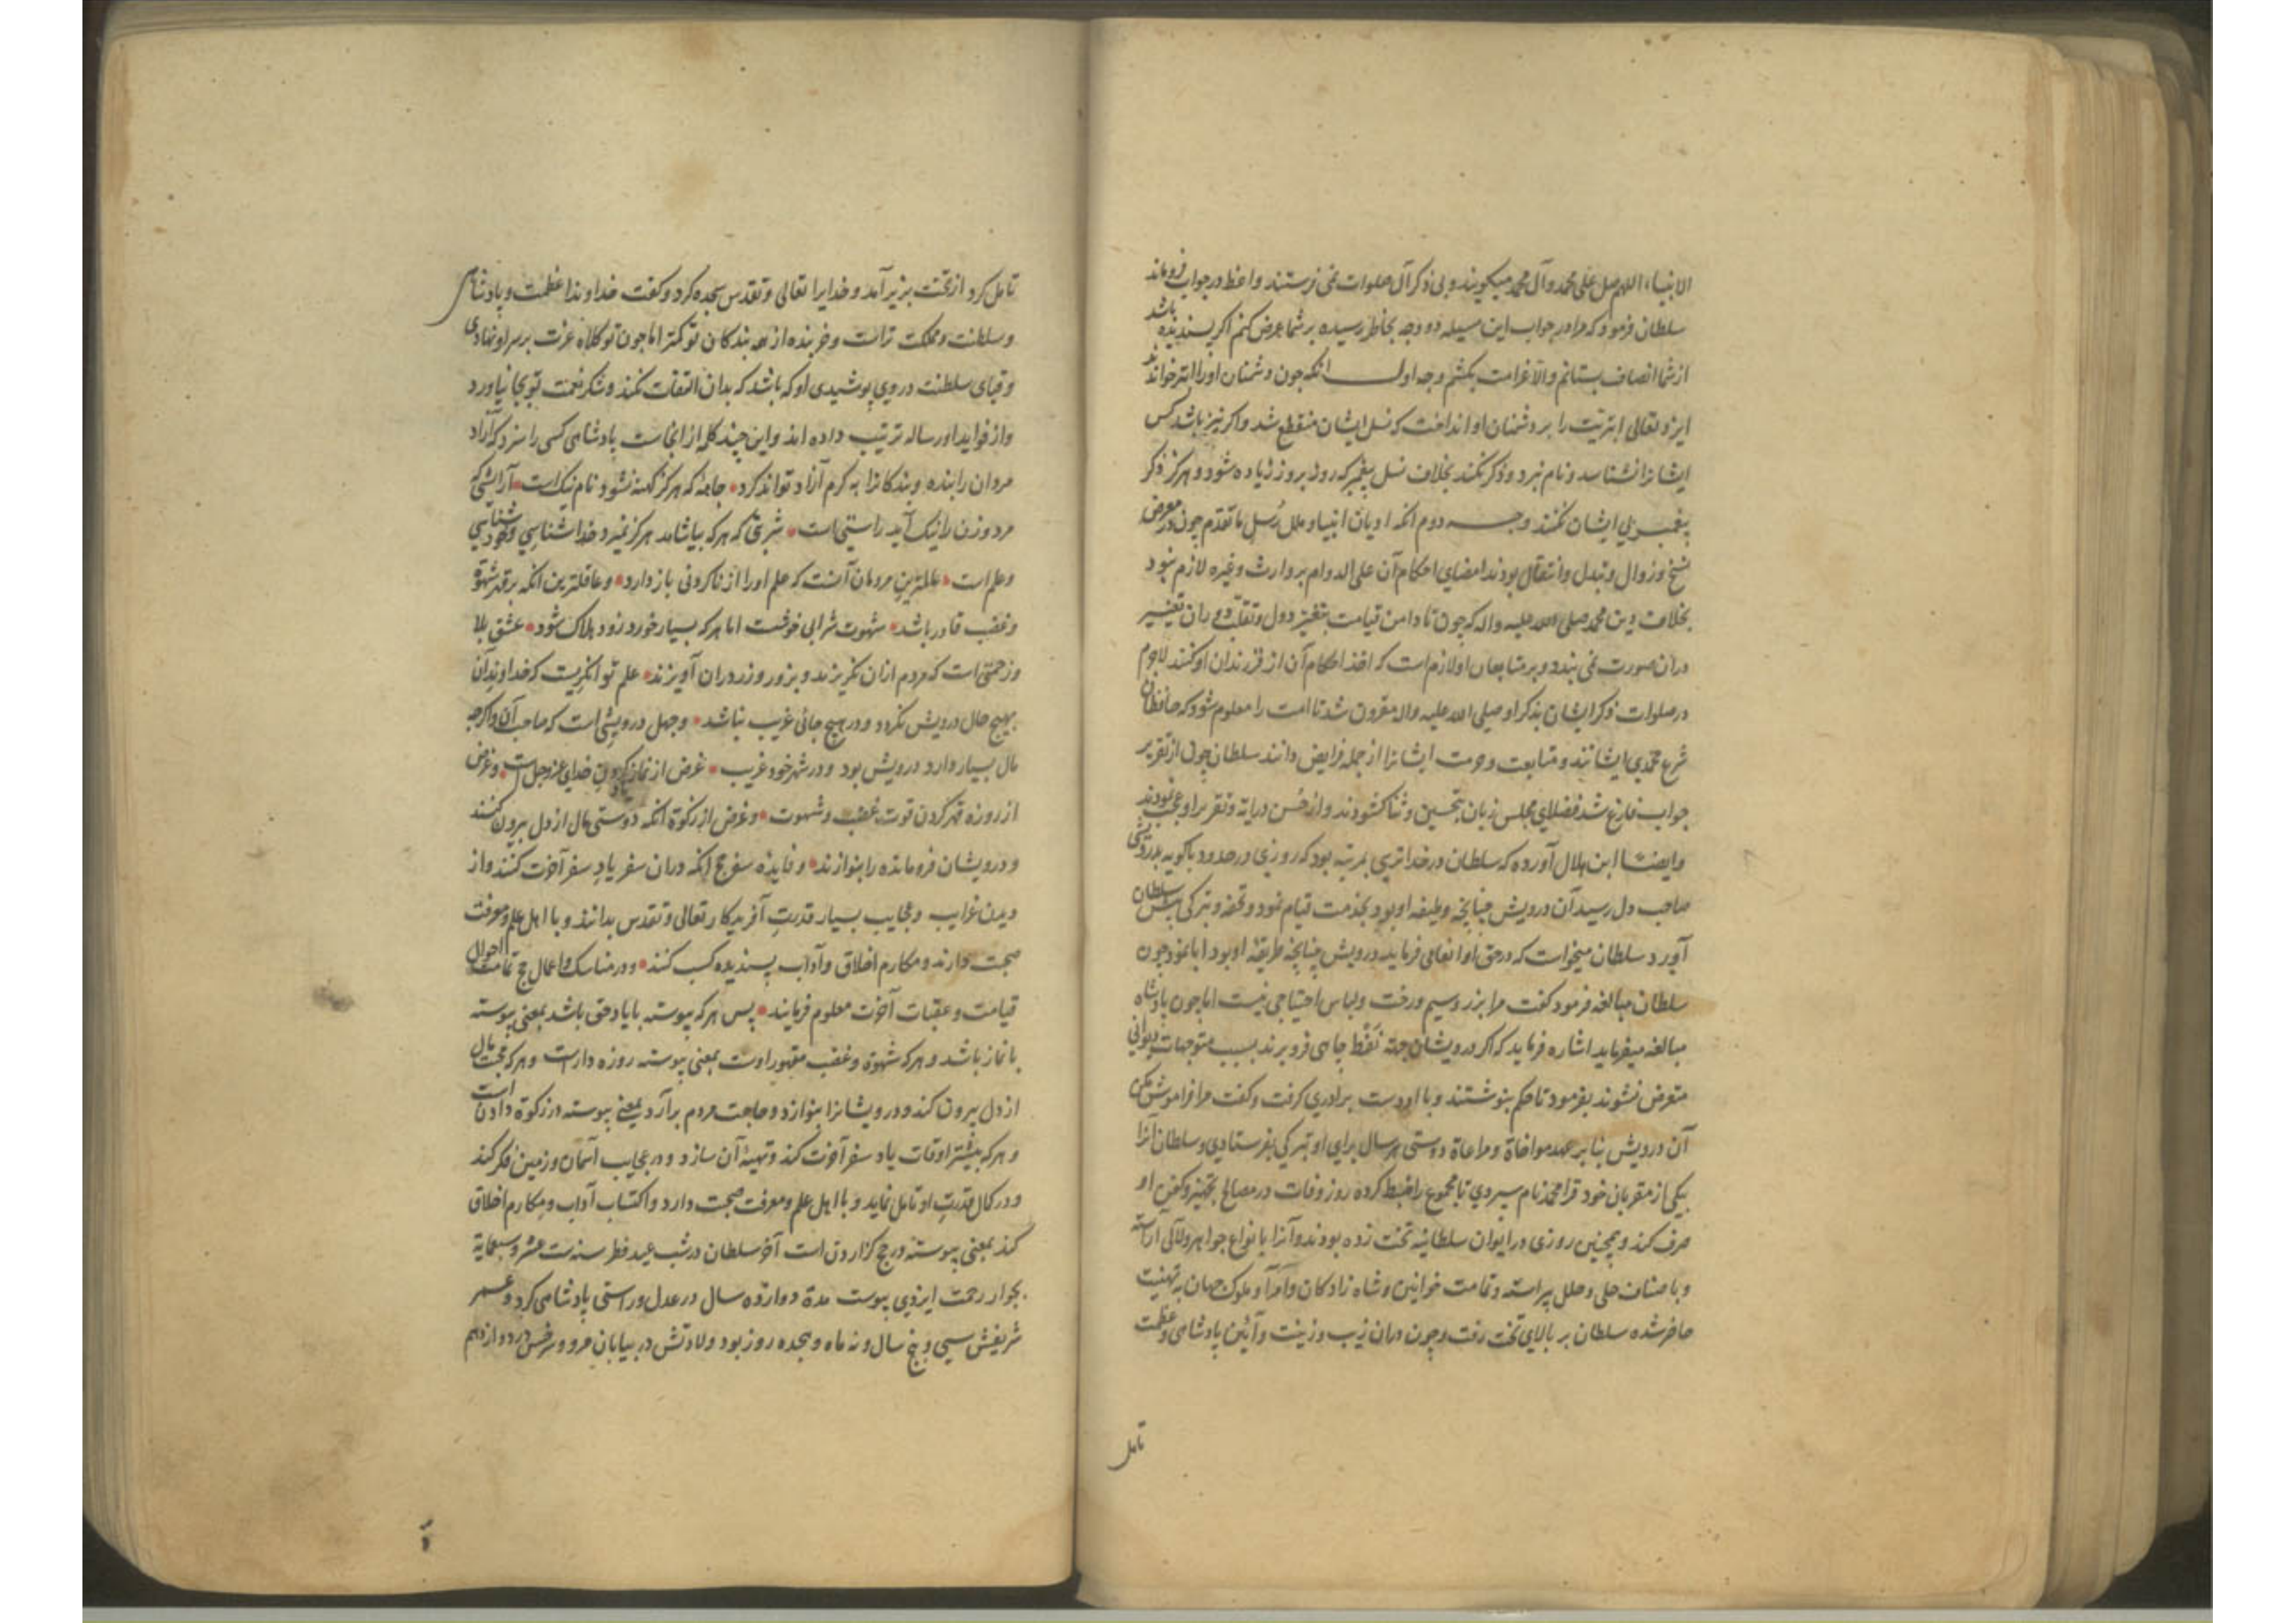 الانبیاء اللهم صل علی محمد و آل محمد میکویند و بی ذکر آل صلوات نمی فرستند واعظ در جواب فروماند
سلطان فرمود که مرا در جواب این مسیله دو وجه بخاطر رسیده بر شما عرض کنم اکر پسندیده باشد
از شما انصاف بستانم والا غرامت بکشم وجه اول انکه چون دشمنان او را ابتر خواندند
ایزد تعالی ابتریت را بر دشمنان او انداخت که نسل ایشان منقطع شد و اکر نیز باشد کس
ایشانرا نشناسد و نام نبرد و ذکر نکند بخلاف نسل پیغمبر که روز بروز زیاده شود و هرکز ذکر
پیغمبر بی ایشان نکنند وجه دوم انکه ادیان انبیا و ملل رسل ما تقدم چون در معرض
نسخ و زوال و تبدل و انتقال بودند امضای احکام آن علی الدوام بر وارث و غیره لازم نبود
بخلاف دین محمد صلی الله علیه واله که چون تا دامن قیامت بتغیر دول و تقلب دوران تغییر
دران صورت نمی بندد و بر متابعان او لازم است که اخذ احکام آن از فرزندان او کنند لاجرم
در صلوات ذکر ایشان بذکر او صلی الله علیه واله مقرون شد تا امت را معلوم شود که حافظان
شرع محمدی ایشانند و متابعت و حرمت ایشانرا از جمله فرایض دانند سلطان چون از تقریر
جواب فارغ شد فضلای مجلس زبان بتحسین و ثنا کشودند و از حسن درایه و تقریر او عجب نمودند
و ایضا ابن هلال آورده که سلطان در خدا ترسی بمرتبه بود که روزی در حدود باکویه بدرویشی
صاحب دل رسید آن درویش چنانچه وظیفه او بود بخدمت قیام نمود و تحفه و تبرکی پیش سلطان
آورد سلطان میخواست که در حق او انعامی فرماید درویش چنانچه طریقه او بود ابا نمود چون
سلطان مبالغه فرمود کفت مرا بزر و سیم و رخت و لباس احتیاجی نیست اما چون پادشاه
مبالغه میفرماید اشاره فرماید که اکر درویشان جهة نفط چاهی فرو برند بسبب متوجهات دیوانی
متعرض نشوند بفرمود تا حکم بنوشتند و با او دست برادری کرفت و کفت مرا فراموش مکن
آن درویش بنا بر عهد مواخاة و مراعاة دوستی هر سال برای او تبرکی بفرستادی و سلطان آنرا
بیکی از مقربان خود قرا محمد نام سپردی تا مجموع را ضبط کرده روز وفات در مصالح تجهیز و کفن او
صرف کند و همچنین روزی در ایوان سلطانیه تخت زده بودند و آنرا بانواع جواهر و لآلی آراسته
و باصناف حلی و حلل پیراسته و تمامت خواتین و شاه زادکان و امرا و ملوک جهان به تهنیت
حاضر شده سلطان بر بالای تخت رفت و چون دران زیب و زینت و آئین پادشاهی و عظمت
تامل
تامل کرد از تخت بزیر آمد و خدایرا تعالی و تقدس سجده کرد و کفت خداوندا عظمت و پادشاهی
و سلطنت و مملکت تراست و خربنده از همه بندکان تو کمتر اما چون تو کلاه عزت بر سر او نهادی
و قبای سلطنت در وی پوشیدی او که باشد که بدان التفات نکند و شکر نعمت تو بجا نیاورد
و از فواید او رساله ترتیب داده اند و این چند کلمه از انجاست پادشاهی کسی را سزد که آزاد
مردان را بنده و بندکانرا به کرم آزاد تواند کرد جامه که هرکز کهنه نشود نام نیک است آرایشی که
مرد و زن را نیک آید راستی است شربتی که هرکه بیاشامد هرکز نمیرد خدا شناسی و خود شناسی
و علم است عالمترین مردمان آنست که علم او را از ناکردنی باز دارد و عاقلترین انکه بر قهر شهوة
و غضب قادر باشد شهوت شرابی خوشست اما هرکه بسیار خورد زود هلاک شود عشق بلا
و زحمتی است که مردم ازان نکریزند و بزور و زر دران آویزند علم توانکریست که خداوند آن
بهیچ حال درویش نکردد و در هیچ جائی غریب نباشد و جهل درویشی است که صاحب آن اکرچه
مال بسیار دارد درویش بود و در شهر خود غریب غرض از نماز یاد کردن خدای عزوجل است و غرض
از روزه قهر کردن قوت غضب و شهوت و غرض از زکوة انکه دوستی مال از دل بیرون کنند
و درویشان فرومانده را بنوازند و فایده سفر حج انکه دران سفر یاد سفر آخرت کنند و از
دیدن غرایب و عجایب بسیار قدرت آفریدکار تعالی و تقدس بدانند و با اهل علم و معرفت
صحبت دارند و مکارم اخلاق و آداب پسندیده کسب کنند و در مناسک و اعمال حج تمامت احوال
قیامت و عقبات آخرت معلوم فرمایند پس هرکه پیوسته با یاد حق باشد بمعنی پیوسته
با نماز باشد و هرکه شهوة و غضب مقهور اوست بمعنی پیوسته روزه دارست و هرکه محبت مال
از دل بیرون کند و درویشانرا بنوازد و حاجت مردم برآرد بمعنی پیوسته در زکوة دادن است
و هرکه بیشتر اوقات یاد سفر آخرت کند و تهیه آن سازد و در عجایب آسمان و زمین فکر کند
و در کمال قدرت او تامل نماید و با اهل علم و معرفت صحبت دارد و اکتساب آداب و مکارم اخلاق
کند بمعنی پیوسته در حج کزاردن است آخر سلطان در شب عید فطر سنه ست عشر و سبعمایة
بجوار رحمت ایزدی پیوست مدة دوازده سال در عدل و راستی پادشاهی کرد و عمر
شریفش سی و پنج سال و نه ماه و هجده روز بود ولادتش در بیابان مرو و سرخس در دوازدهم